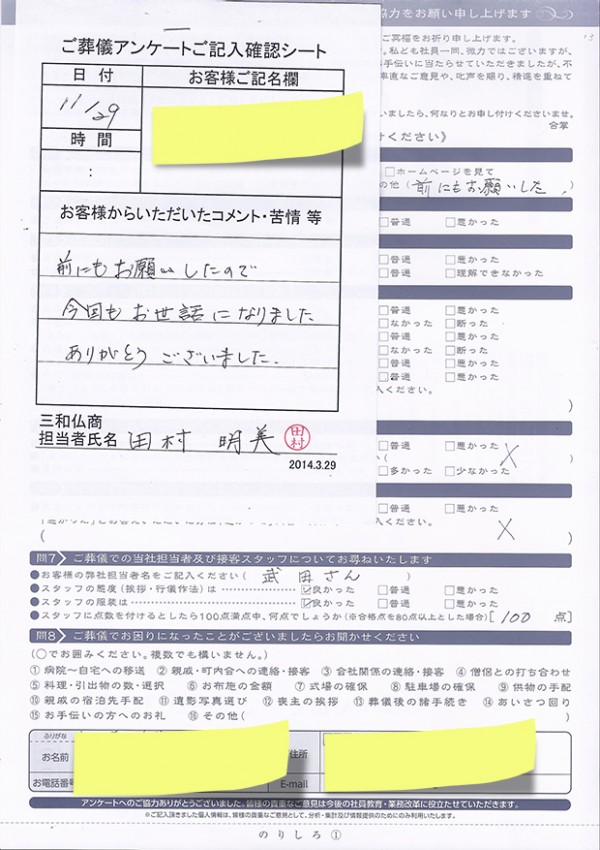 協力をお願い申し上げます
ご葬儀アンケートご記入確認シート
日 付
お客様ご記名欄
11/29
時 間
:
お客様からいただいたコメント・苦情 等
前にもお願いしたので
今回もお世話になりました
ありがとうございました.
三和仏商
担当者氏名 田村 明美
田村
2014.3.29
ご冥福をお祈り申し上げます。
私ども社員一同、微力ではございますが、
手伝いに当たらせていただきましたが、不
直なご意見や、叱声を賜り、精進を重ねて
いましたら、何なりとお申し付けくださいませ。
合掌
けください》
□ホームページを見て
の他( 前にもお願いした )
□普通 □悪かった
□普通 □悪かった
□普通 □理解できなかった
□普通 □悪かった
□なかった □断った
□普通 □悪かった
□なかった □断った
□普通 □悪かった
□普通 □悪かった
入ください。
)
□普通 □悪かった
□多かった □少なかった )
□普通 □悪かった
入ください。
( )
問7 ご葬儀での当社担当者及び接客スタッフについてお尋ねいたします
●お客様の弊社担当者名をご記入ください( 武田さん )
●スタッフの態度(挨拶・行儀作法)は ☑良かった □普通 □悪かった
●スタッフの服装は ☑良かった □普通 □悪かった
●スタッフに点数を付けるとしたら100点満点中、何点でしょうか(※合格点を80点以上とした場合)[ 100 点]
問8 ご葬儀でお困りになったことがございましたらお聞かせください
(○でお囲みください。複数でも構いません。)
①病院〜自宅への移送 ②親戚・町内会への連絡・接客 ③会社関係の連絡・接客 ④僧侶との打ち合わせ
⑤料理・引出物の数・選択 ⑥お布施の金額 ⑦式場の確保 ⑧駐車場の確保 ⑨供物の手配
⑩親戚の宿泊先手配 ⑪遺影写真選び ⑫喪主の挨拶 ⑬葬儀後の諸手続き ⑭あいさつ回り
⑮お手伝いの方へのお礼 ⑯その他( )
ふりがな
お名前
住所
お電話番号
E-mail
アンケートへのご協力ありがとうございました。皆様の貴重なご意見は今後の社員教育・業務改革に役立たせていただきます。
※ご記入頂きました個人情報は、皆様の貴重なご意見として、分析・集計及び情報提供のためにのみ利用いたします。
のりしろ①